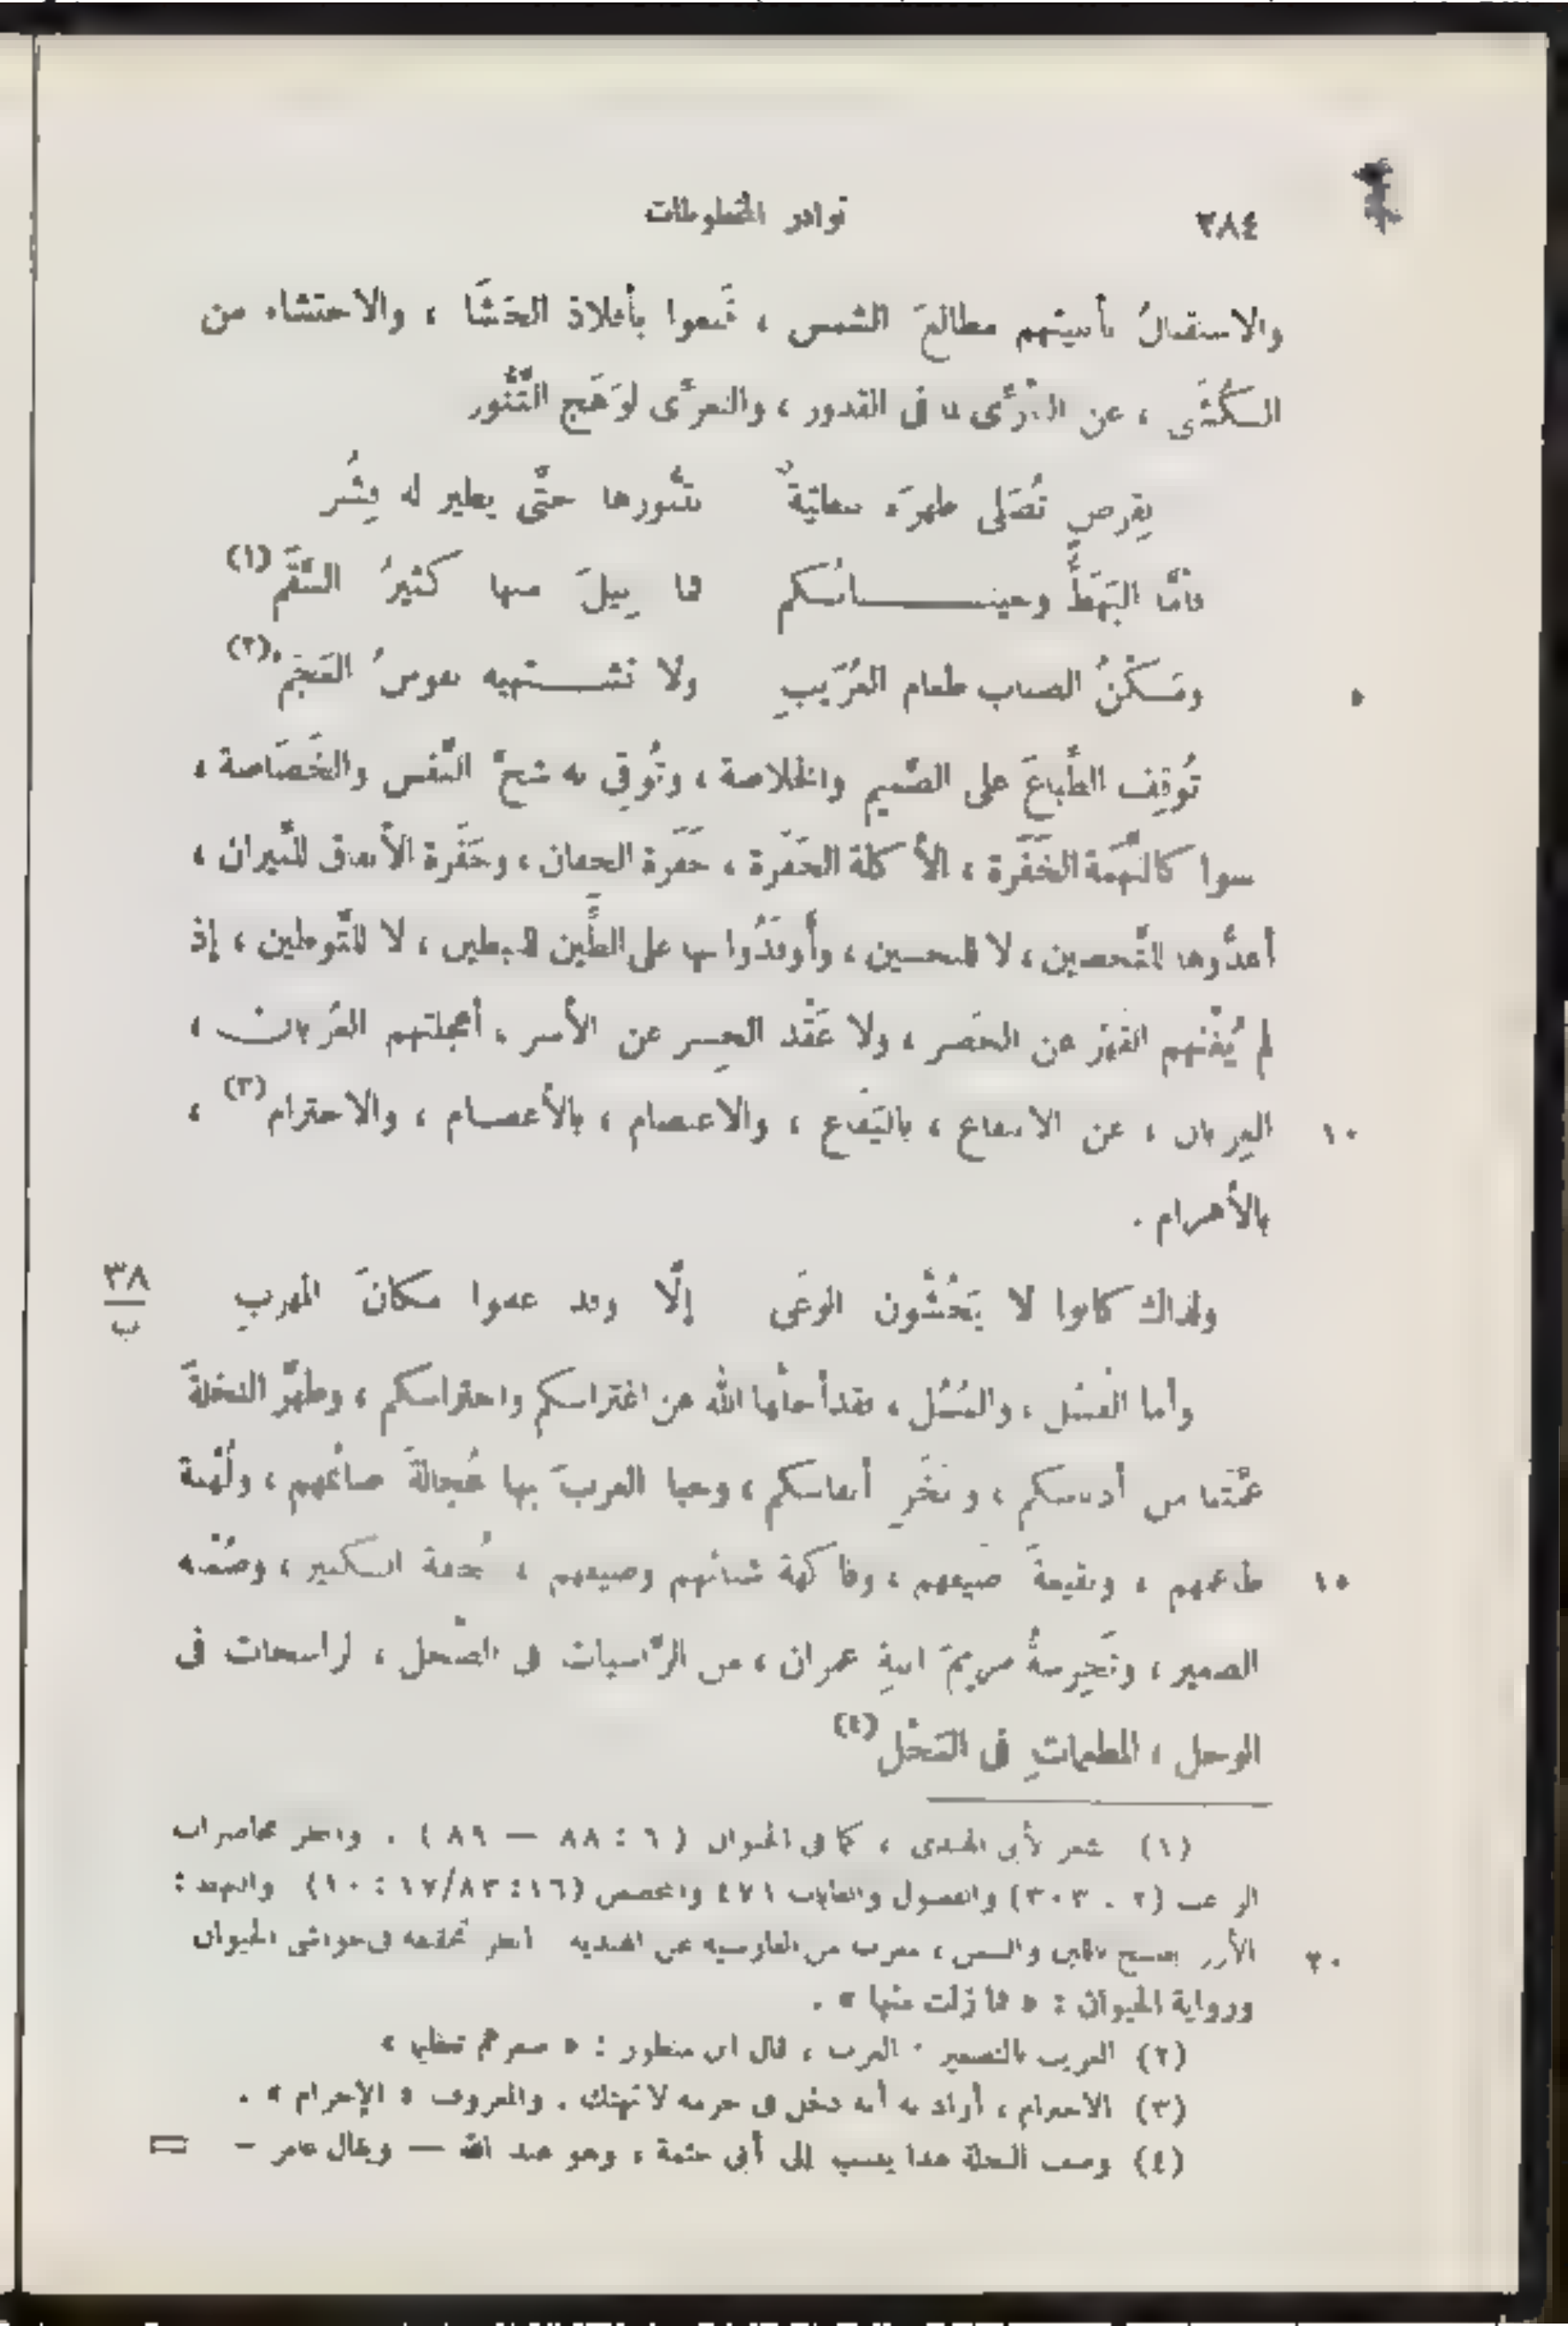 ٢٨٤
نوادر المخطوطات
والاستقبالُ بأبنيتهم مطالعَ الشمس ، قَنعوا بأفلاذ الحَشَا ، والاحتشاء من
الكُشَى ، عن فى القدور ، والتعرِّى لوَهَج التَّنُّور
بِقرصٍ تُصَلى ظهرَه تنُّورها حتَّى يطير له قِشْر
فأمّا البَهَطُّ وحيتانُكم فما زِيلَ منها كثيرُ السَّقَم (١)
ومَكْنُ الضباب طعام العُرَيبِ ولا تشتهيه نفوسُ العَجَمْ (٢)
٥
تُوقِف الطِّباعَ على الصَّميم والخلاصة ، وتُوقِى به شحّ النَّفس والخَصَاصة ،
كالنَّهِمَة ، الأكلة ، الجفان ، للنِّيران ،
أعدُّوها للتَّحصين ، لا للتحسين ، وأوقدُوا بها على الطِّين ، لا للتَّوطين ، إذ
لم يُغْنهم عن الحَصر ، ولا عَقْد الجِسر عن الأسر ، أعجلتهم الغربان ،
العربان ، عن الامتناع ، باليَفَاع ، والاعتصام ، بالأعصام ، والاحترام (٣) ،
١٠
بالأهرام .
ولذاك كانوا لا يَخْشَون الوغَى إلّا وقد عرفوا مكانَ المهربِ
٣٨
ب
وأما العَسَل ، ، فقد أجلَّها الله عن اغتراسكم واحتراسكم ، وطهَّر النخلةَ
من أدناسكم ، و أنفاسكم ، وحبا العربَ بها عُجالةَ صائمهم ، ولُهْنة
طاعمهم ، ونقيعةَ ضيفهم ، وفاكهة شتائهم وصيفهم ، تُحفة الكبير ، وصُمْتة
١٥
الصغير ، مريمَ ابنةِ عمران ، من الرَّاسيات فى الضَّحل ، الراسخات فى
الوحل ، المطعماتِ فى المَحْل (٤)
(١) شعر لأبى الهندى ، كما فى الحيوان ( ٦ : ٨٨ — ٨٩ ) . وانظر محاضرات
الراغب (٢ . ٣٠٣) والفصول والغايات ٤٧١ والمخصص (١٦ : ١٧/٨٣ : ١٠) والبهط :
الأرز يطبخ باللبن والسمن ، معرب من الفارسية عن الهندية انظر تحقيقه فى حواشى الحيوان
٢٠
ورواية الحيوان : « فما زلت منها » .
(٢) العريب بالتصغير : العرب ، قال ابن منظور : « صغرهم تعظيما »
(٣) الاحترام ، أراد به أنه دخل فى حرمه لا تهتك . والمعروف « الإحرام » .
(٤) وصف النخلة هذا ينسب إلى أبى حثمة ، وهو عبد الله — ويقال عامر — =